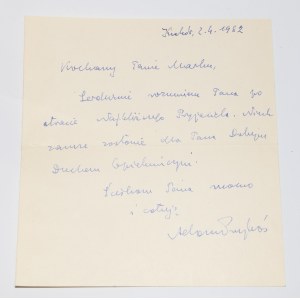 Kraków, 2.4.1982
Kochany Panie Marku,
Serdecznie rozumiem Pana po
stracie najbliższego Przyjaciela. Niech
zawsze zostanie dla Pana Dobrym
Duchem Opiekuńczym.
Ściskam Pana mocno
i całuję
Adam